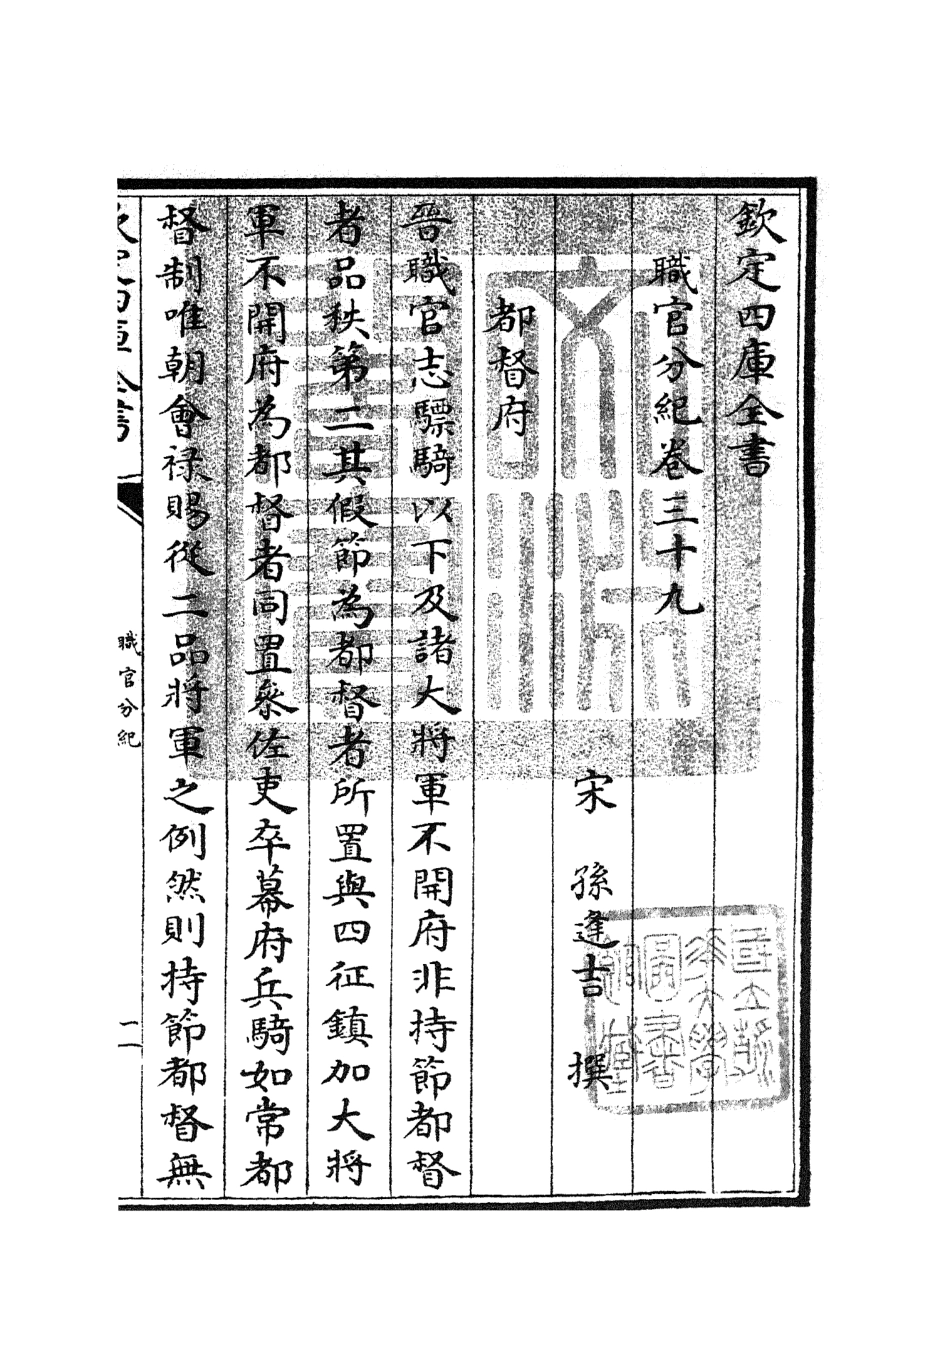 欽定四庫全書
職官分紀卷三十九
宋 孫逢吉 撰
都督府
晉職官志驃騎以下及諸大將軍不開府非持節都督
者品秩第二其假節為都督者所置與四征鎮加大將
軍不開府為都督者同置叅佐吏卒幕府兵騎如常都
督制唯朝會祿賜從二品將軍之例然則持節都督無
欽定四庫全書
職官分紀